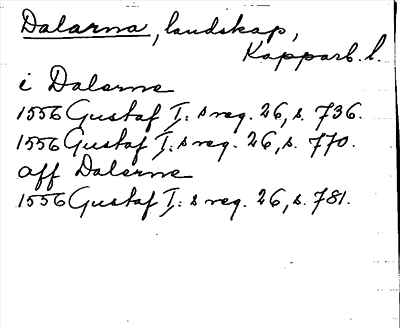 Dalarna, landskap,
Kopparb. l.
i Dalerne
1556 Gustaf I:s reg. 26, s. 736.
1556 Gustaf I:s reg. 26, s. 770.
aff Dalerne
1556 Gustaf I:s reg. 26, s. 781.